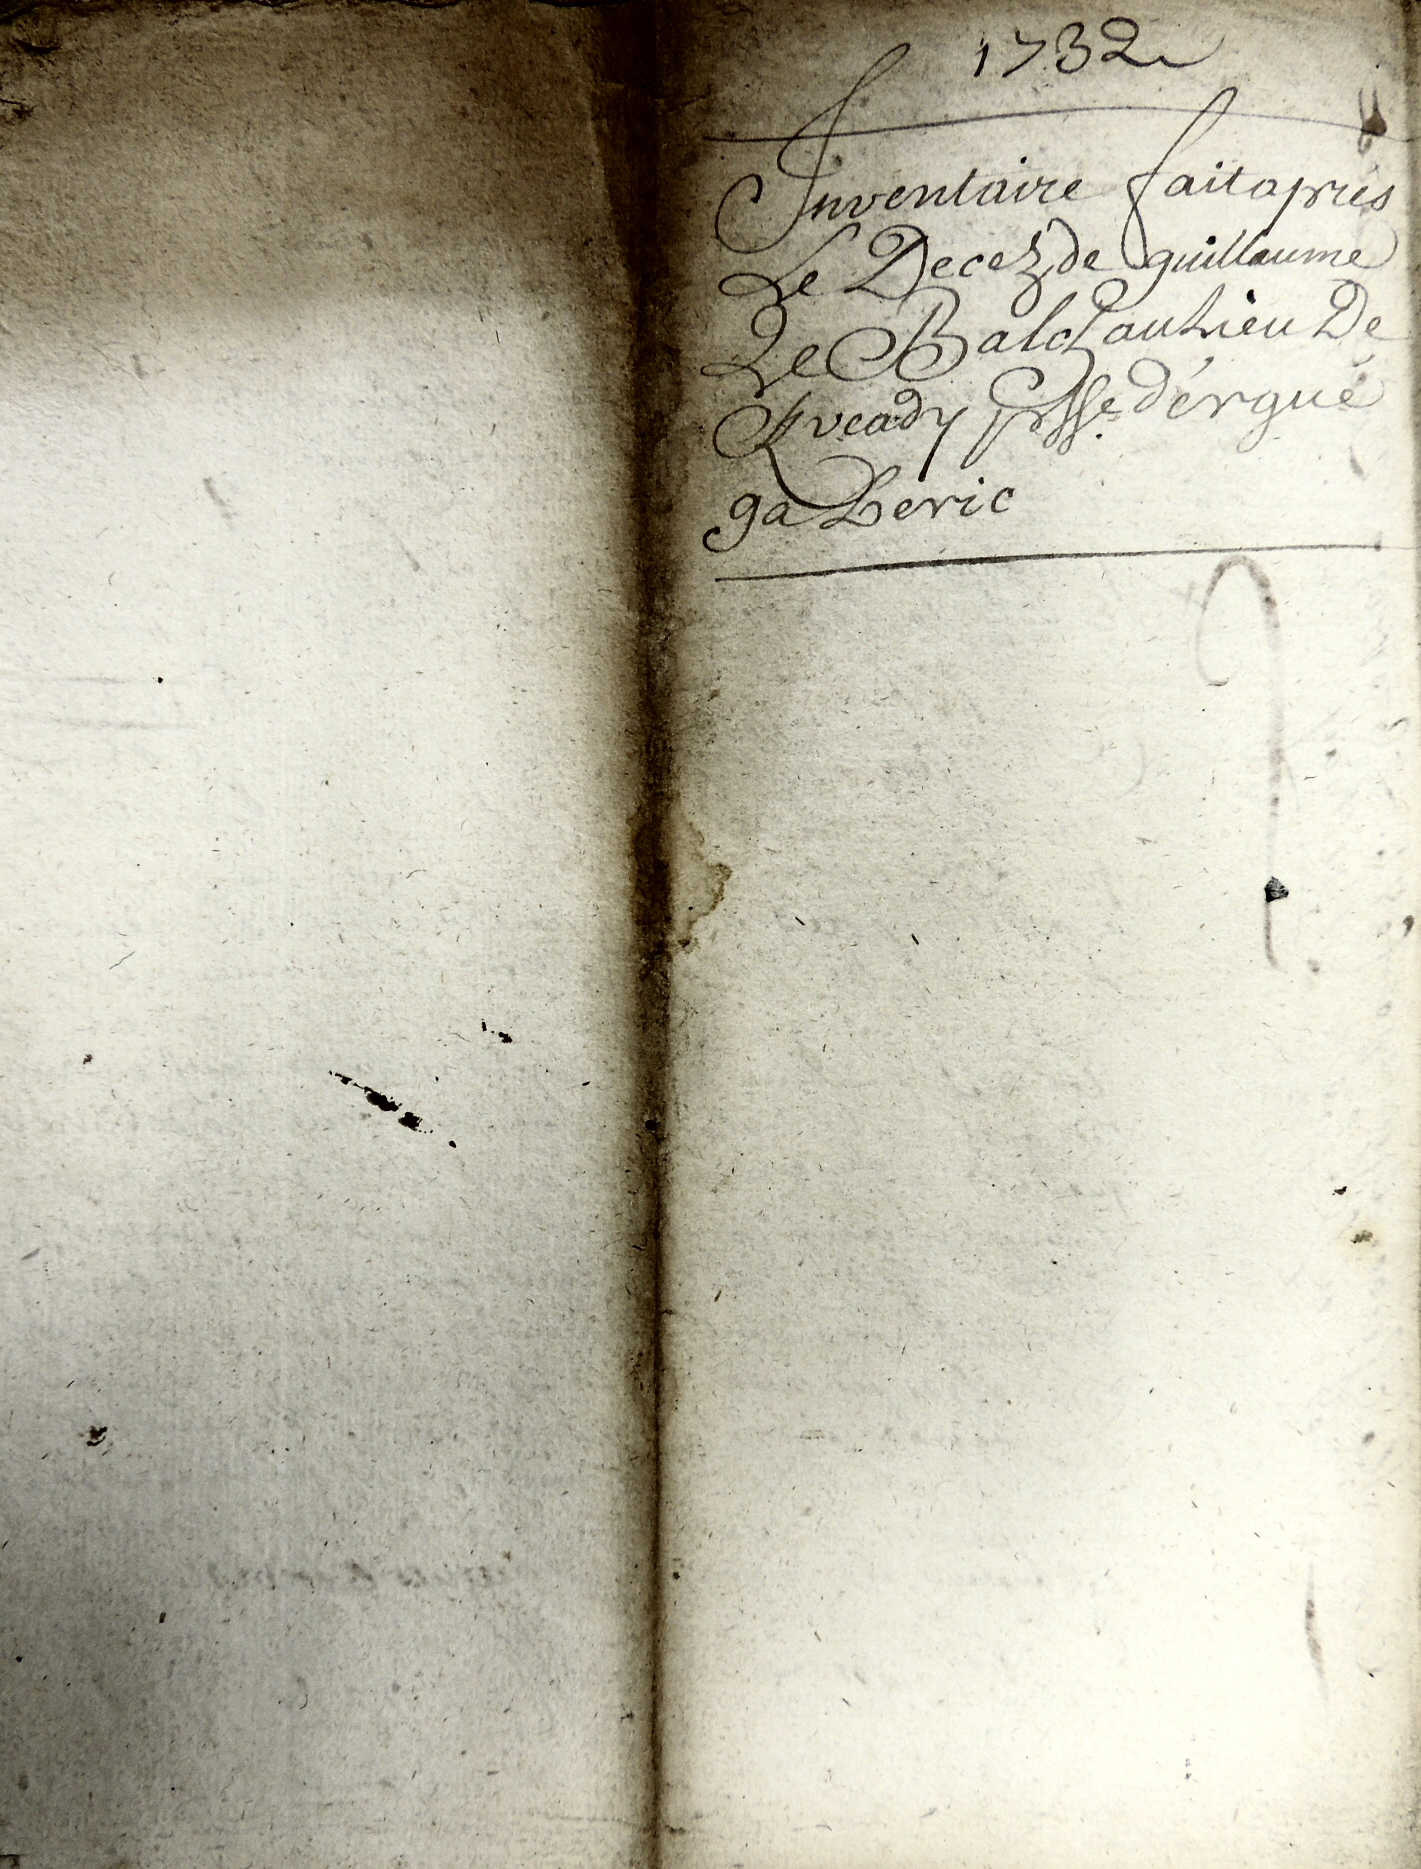 1732
Inventaire fait apres
Le Decez de guillaume
Le Balch au Lieu De
Kveady psse d'ergué
gaberic